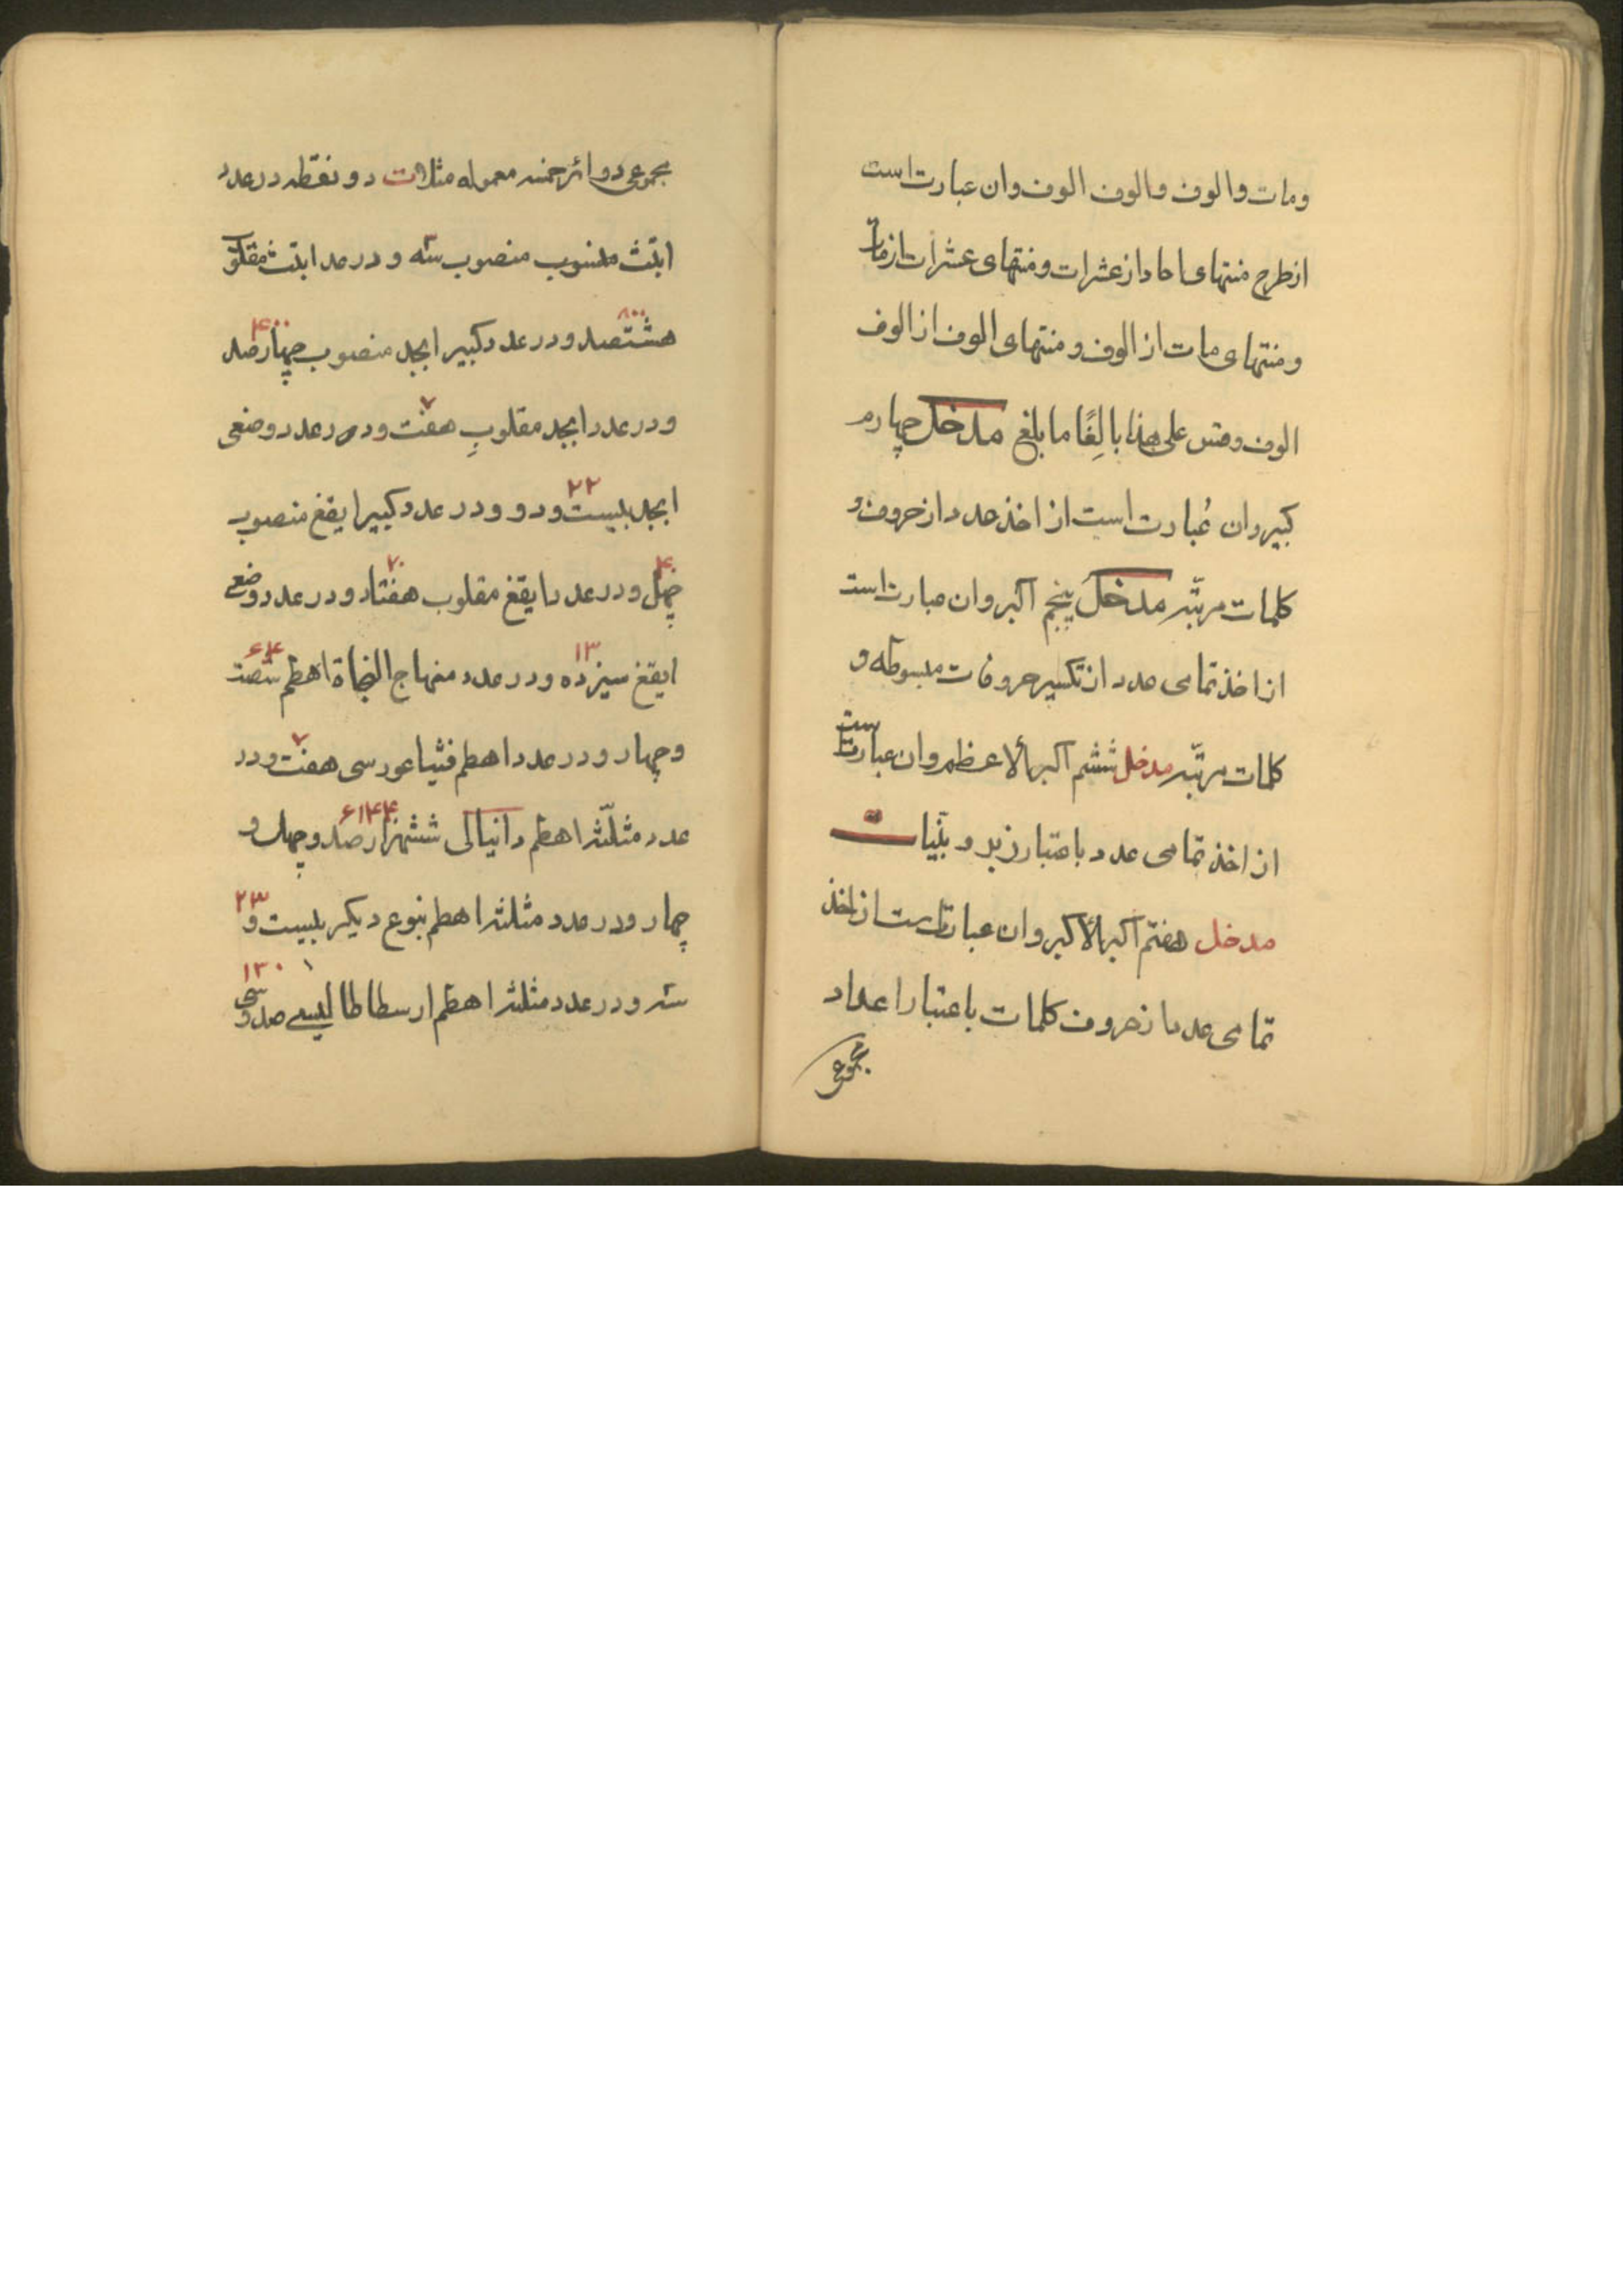 ومات والوف والوف الوف وان عبارت است
ازطرح منتهای احاد از عشرات ومنتهای عشرات از مات
ومنتهای مات از الوف ومنتهای الوف از الوف
الوف وقس علی هذا بالِغًا ما بلغ مدخل چهارم
کبیر وان عُبارت است از اخذ عدد از حروف و
کلمات مرتبه مدخل پنجم آکبر وان عبارت است
از اخذ تمامی عدد از تکسیر حروفات مبسوطه و
کلمات مرتبه مدخل ششم آکبر ألاعظم وان عبارتست
از اخذ تمامی عدد باعتبار زبر و بیّنات
مدخل هفتم آکبر ألاکبر وان عبارتست از اخذ
تمامی عدد از حروف کلمات باعتبار اعداد
مجموع
مجموعی دوائر خمسه معموله مثلا ت دو نقطه در عدد
ابتث منسوب منصوب سه و در عدد ابتث مقلوب
۸۰۰ ۴۰۰
هشتصد ودر عدد کبیر ابجد منصوب چهارصد
۷
ودر عدد ابجد مقلوبِ هفت ودر عدد وضعی
۲۲
ابجد بیست ودو ودر عدد کبیر ایقغ منصوب
۴۰ ۷۰
چهل ودر عدد ایقغ مقلوب هفتاد ودر عدد وضعی
۱۳ ۶۴
ایقغ سیزده ودر عدد منهاج النجاة اهطم شصت
۷
وچهار ودر عدد اهطم فیثاغورسی هفت ودر
۶۱۴۴
عدد مثلثه اهطم دانیالی ششهزار صد وچهل و
۲۳
چهار ودر عدد مثلثه اهطم بنوع دیکر بیست و
۱۳۰
سه ودر عدد مثلثه اهطم ارسطاطالیسے صد وسی